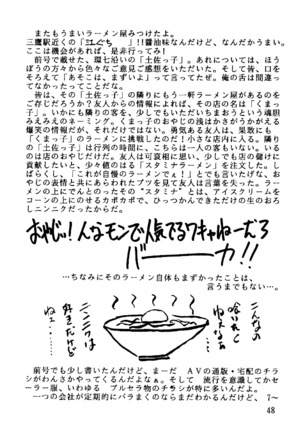 またもうまいラーメン屋みつけたよ。
三鷹駅近くの「えぐち」!!醤油味なんだけど、なんだかうまい。
ここは機会があれば、是非行ってみ!
前号で載せた、環七沿いの「土佐っ子」。あれについては、ほう
ぼうの方々から色々なご意見ご感想をいただいた。そして皆、口を
そろえて「あそこは、まずいよ」って言ってたぜ。俺の舌は間違っ
てなかったってことだな。
皆は、その「土佐っ子」の隣りにもう一軒ラーメン屋があるのをご
存じだろうか?友人からの情報によれば、その店の名は「くまっ
子」。いかにも隣りの客を、少しでもいただいちまおうという魂胆
みえみえのネーミング。くまっ子のおやじの浅はかさがうかがえる
爆笑の情報だが、それだけではない。勇気ある友人は、果敢にも
「くまっ子」のラーメンに挑戦しただけ!小さな店内に入る。隣り
の「土佐っ子」は行列の時間に、こちらは一人の客もいない。いる
のは店のおやじだけだ。友人は可哀相に思い、少しでも店の儲けに
貢献したいと、少々値のはる「スタミナラーメン」を注文した。し
ばらくし、「これが自慢のラーメンでぇ!」とでも言いたげな、お
やじの表情と共にあらわれたブツを見て友人は言葉を失った。ラー
メンの上にでんとのったその"スタミナ"とは、アイスクリームを
コーンの上にのせるカポカポで、ひっつかんできただけの生のおろ
しニンニクだったからだ。
おやじぃ!んなモンで人気でるワキャねーだろ
バーーカ!!
…ちなみにそのラーメン自体もまずかったことは、
言うまでもない…。
こんなの
喰いたく
ねぇなぁ…
ニンニクは
好きだけど
ねェ…
前号でも少し書いたんだけど、まーだ AVの通販・宅配のチラ
シがわんさかやってくるんだよなぁ。そして 流行を意識してかセ
ーラー服、いわゆる ブルセラ物のチラシが特に多いんだよ。
一つの会社が定期的にバラまくのならまだわかるんだけど、7〜
48